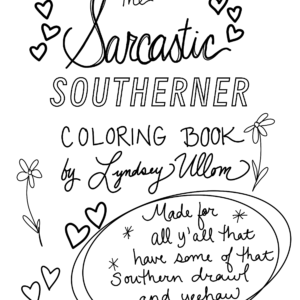 The
Sarcastic
SOUTHERNER
COLORING BOOK
by Lyndsey Ullom
Made for
all y'all that
have some of that
Southern drawl
and yeehaw